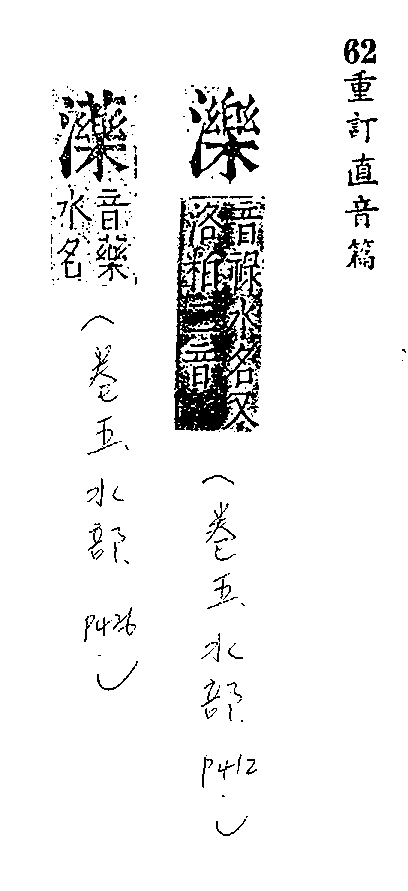 62重訂直音篇
濼
音祿水名又
洛粕二音
(卷五水部 P412.)
濼
音藥
水名
(卷五水部 P426.)